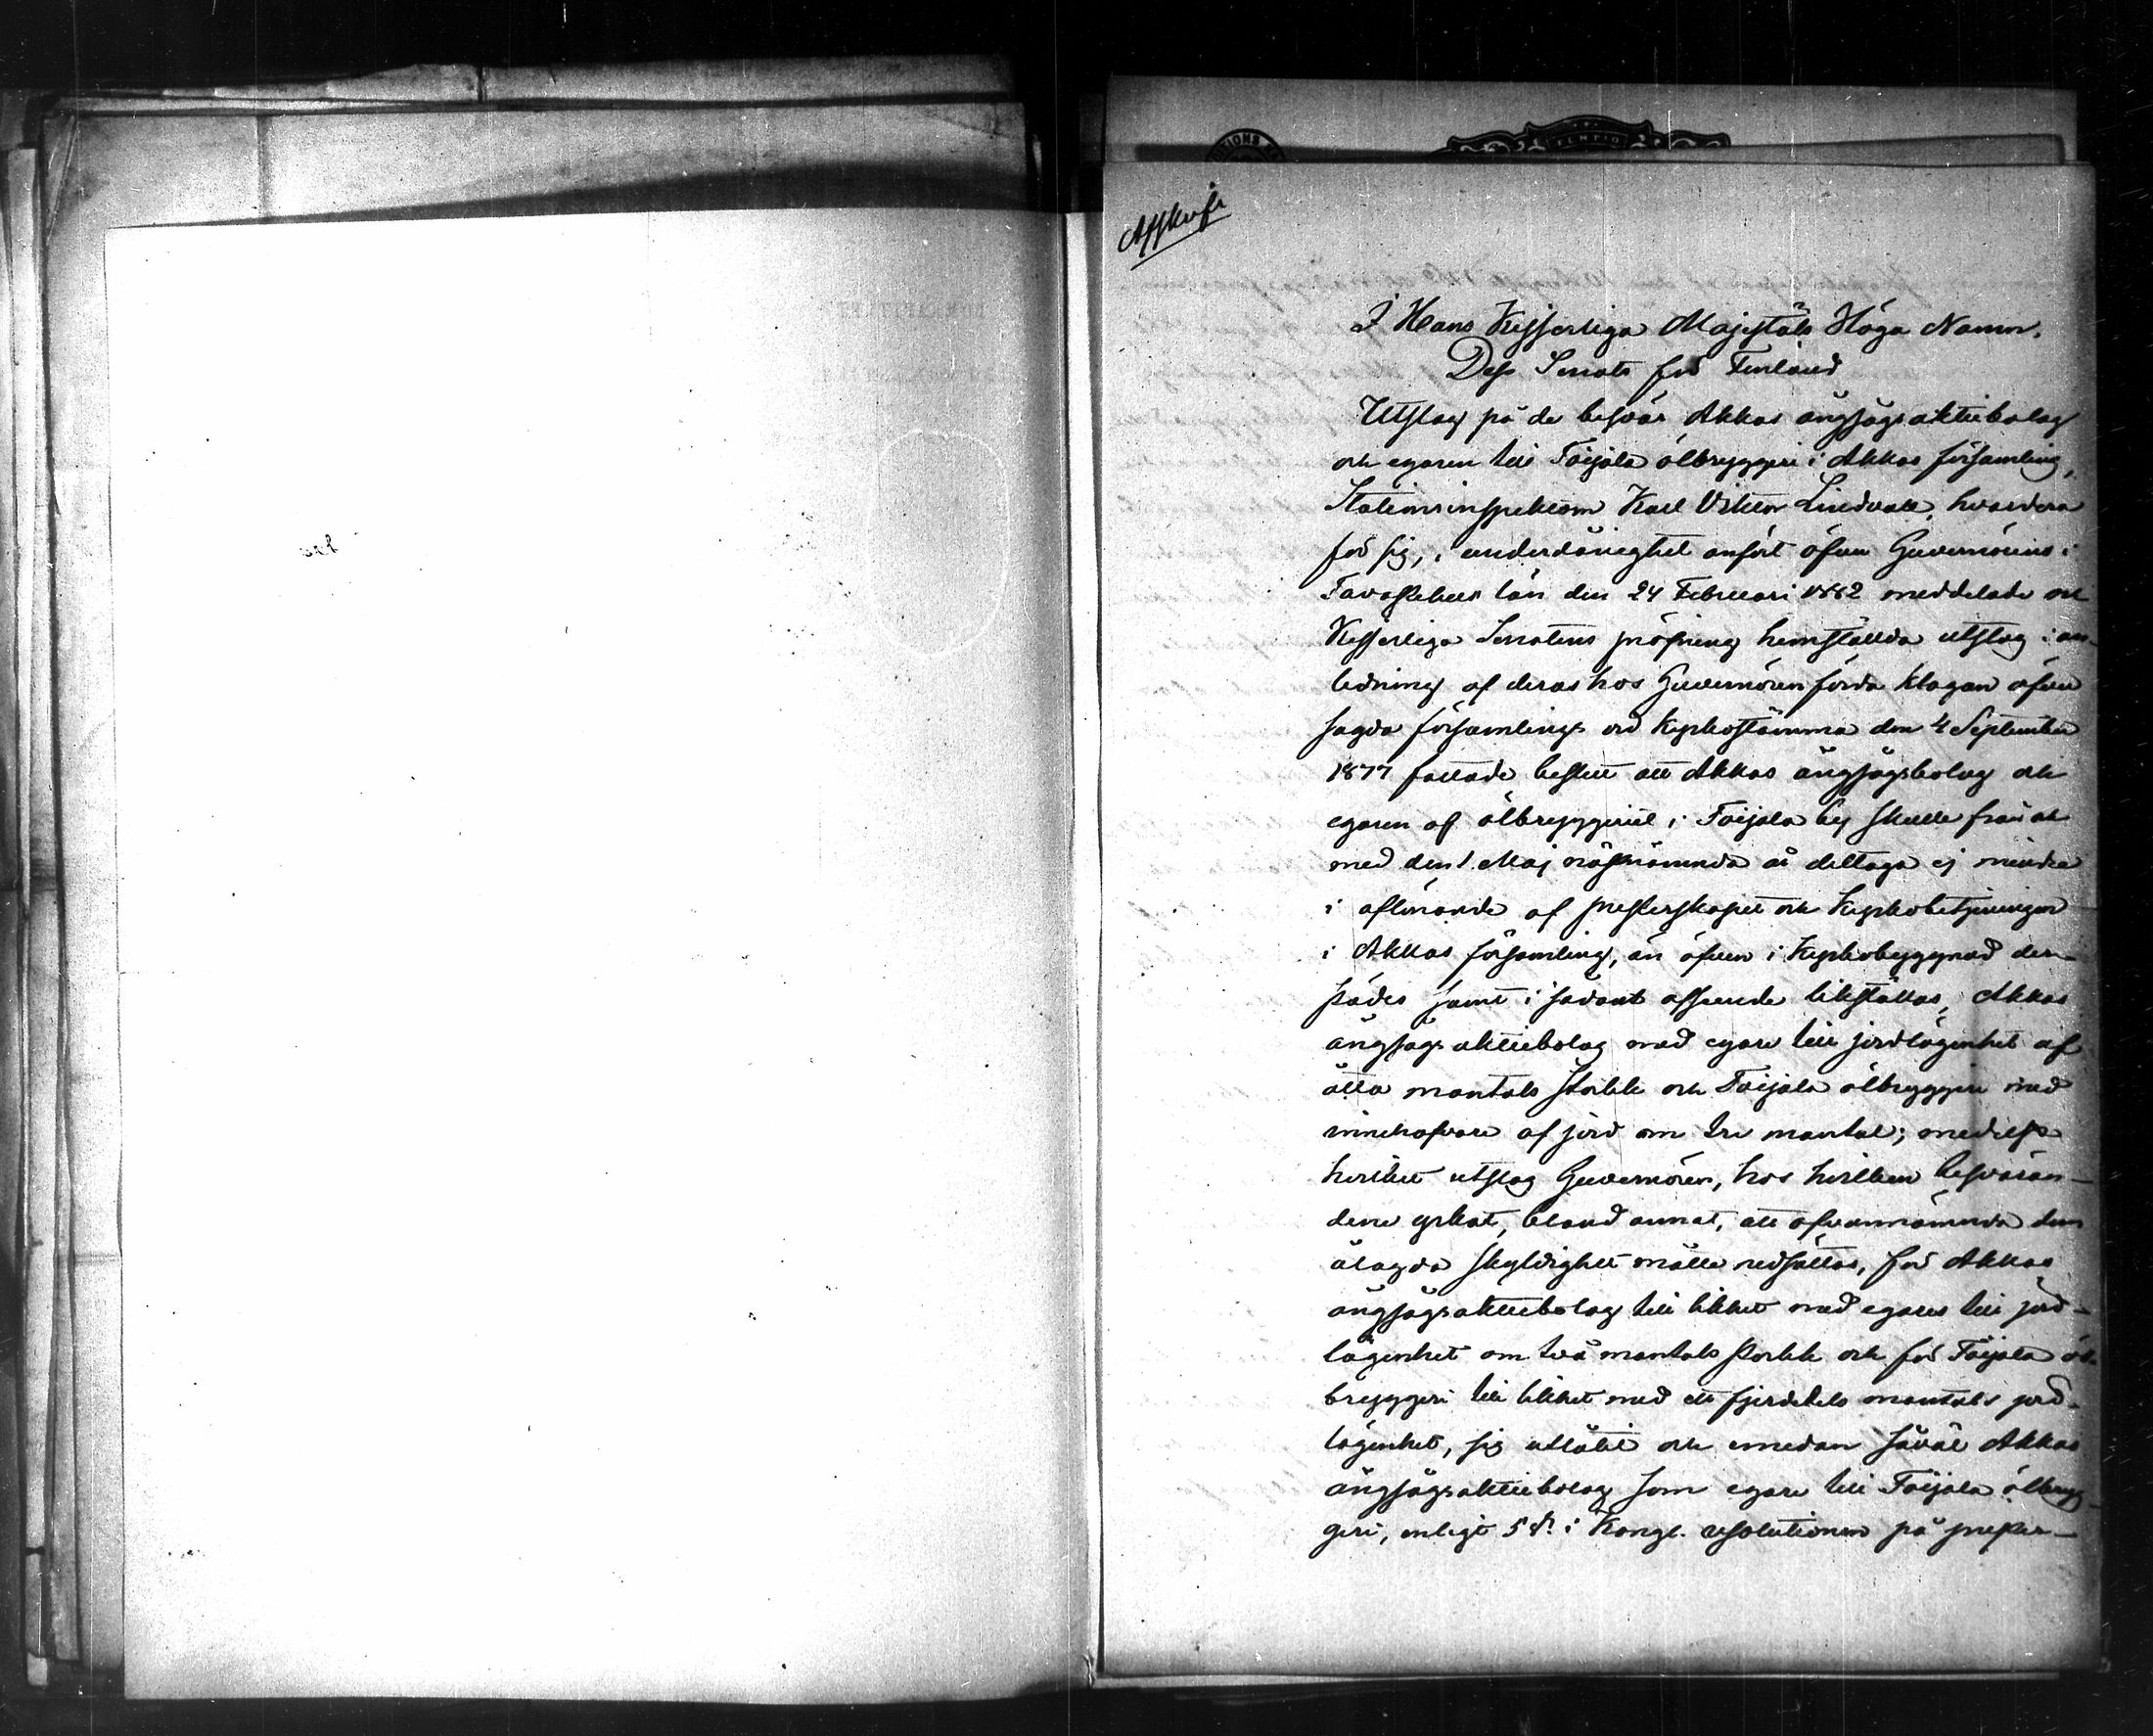 Afskrift
I Hans Kejserliga Majestäts Höga Namn.
Dess Senats för Finland
Utslag på de besvär Akkas ångsågsaktiebolag
och egaren till Toijala ölbryggeri i Akkas församling,
Stationsinspektorn Karl Viktor Lindvall, hvardera
för sig, i underdånighet anfört öfver Guvernörens i
Tavastehus län den 24 Februari 1882 meddelade och
Kejserliga Senatens pröfning hemställda utslag i an-
ledning af deras hos Guvernören förda klagan öfver
sagda församlings vid Kyrkostämma den 4 September
1877 fattade beslut att Akkas ångsågsbolag och
egaren af ölbryggeriet i Toijala by skulle från och
med den 1 Maj näfnämnda år deltaga ej mindre
i aflönande af presterskapet och Kyrkobetjeningen
i Akkas församling, än äfven i Kyrkobyggnad der-
städes samt i sådant afseende likställas, Akkas
ångsågsaktiebolag med egare till jordlägenhet af
åtta mantals storlek och Toijala ölbryggeri med
innehafvare af jord om tre mantal; medelst
hvilket utslag Guvernören, hos hvilken besväran-
dene yrkat, bland annat, att ofvannämnda dem
ålagda skyldighet måtte nedsättas, för Akkas
ångsågsaktiebolag till likhet med egares till jord-
lägenhet om två mantals storlek och för Toijala öl-
bryggeri till likhet med ett fjerdedels mantals jord-
lägenhet, sig utlåtit och emedan såväl Akkas
ångsågsaktiebolag som egare till Toijala ölbryg-
geri, enligt 5 §. i Kongl. resolutionen på prester-